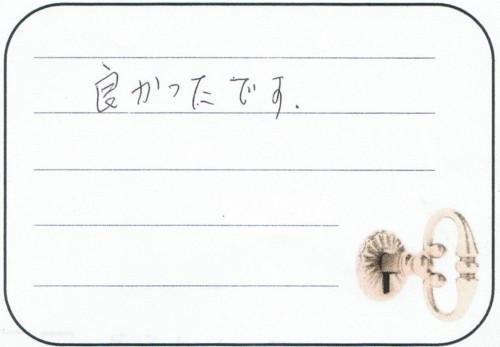 良かったです.